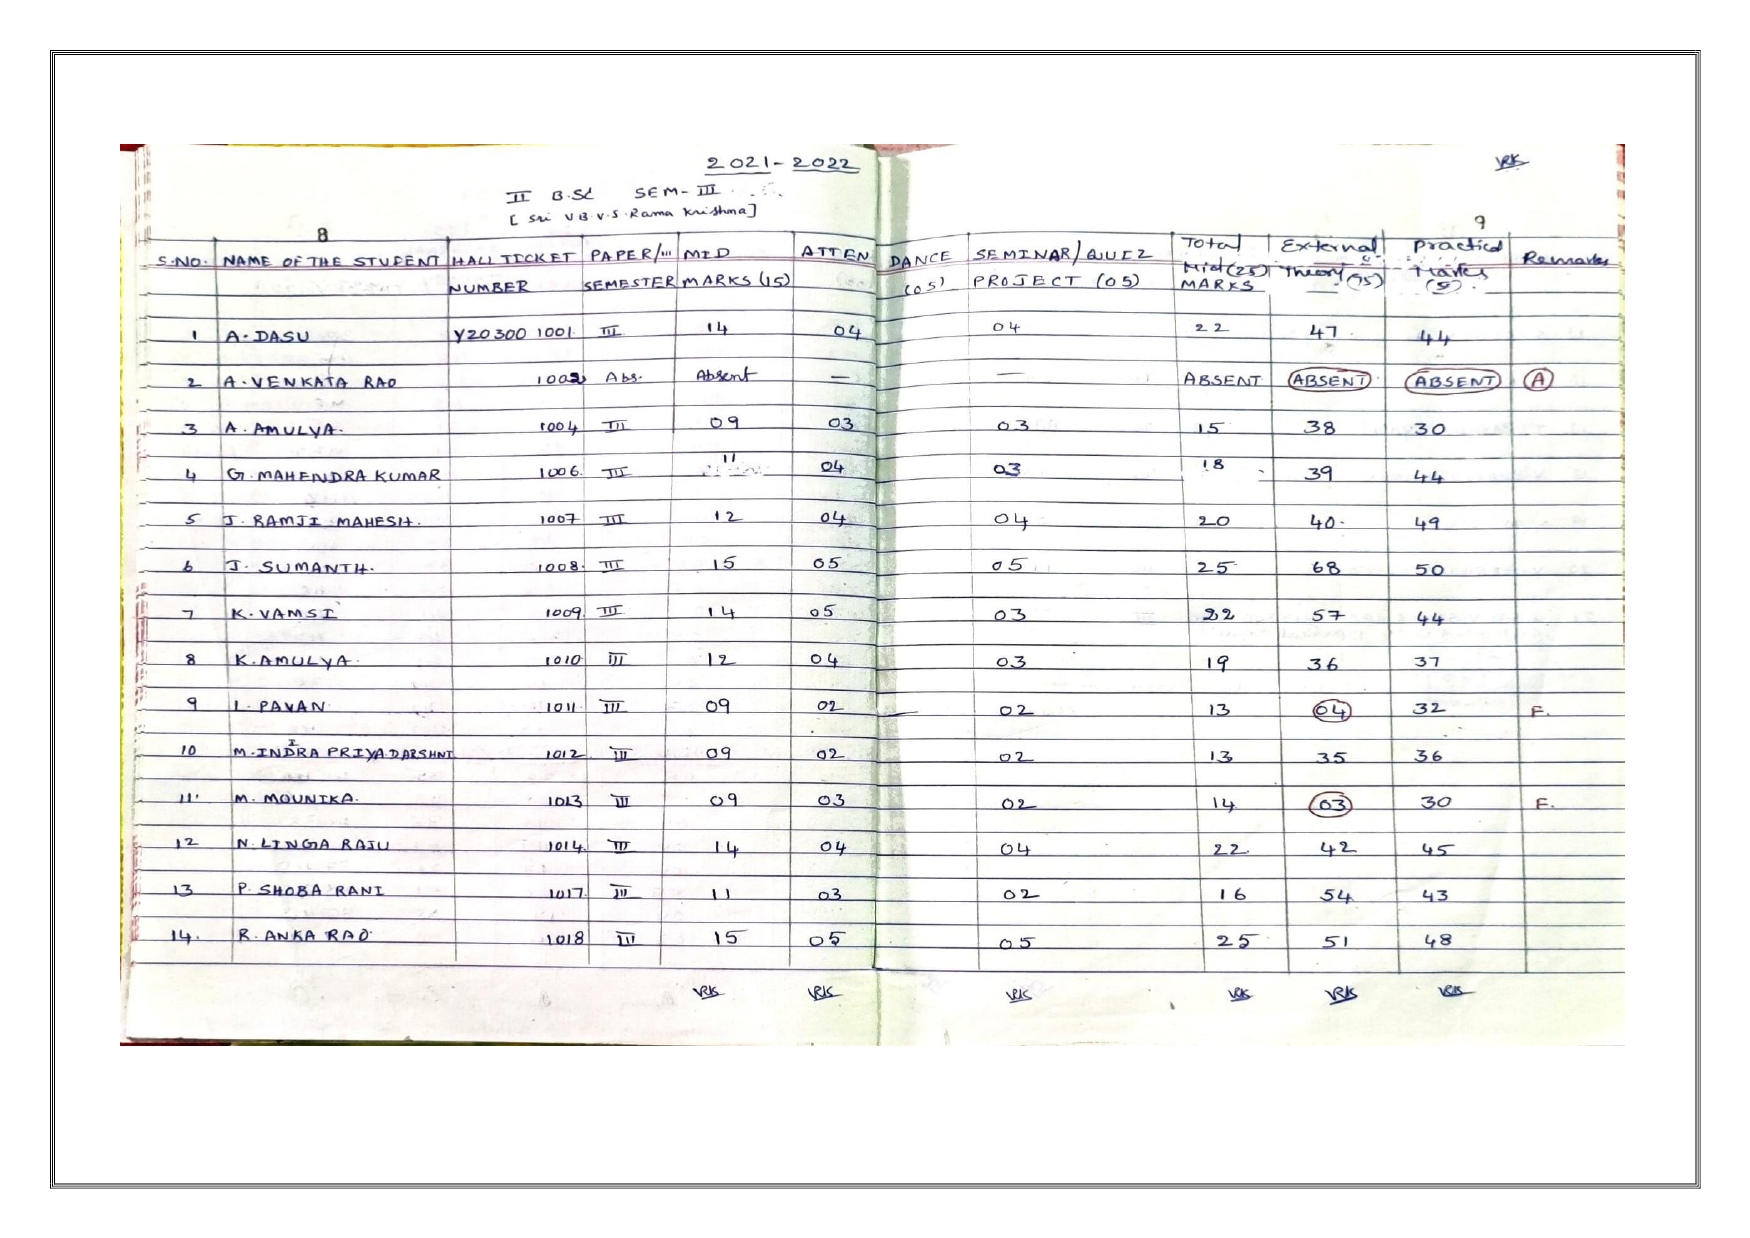 2021-2022 VRK
II B.Sc SEM-III
[Sri V.B.V.S.Rama Krishna]
8 9
S.NO. NAME OF THE STUDENT HALL TICKET PAPER/III MID ATTEN DANCE SEMINAR/QUIZ Total External Practical Remarks
NUMBER SEMESTER MARKS (15) (05) PROJECT (05) Mid(25) MARKS Theory(75) Marks
1 A.DASU Y20300 1001 III 14 04 04 22 47 44
2 A.VENKATA RAO 1002 Abs. Absent — — ABSENT ABSENT ABSENT A
3 A. AMULYA. 1004 III 09 03 03 15 38 30
4 G.MAHENDRA KUMAR 1006. III 11 04 03 18 39 44
5 J. RAMJI MAHESH. 1007 III 12 04 04 20 40. 49
6 J. SUMANTH. 1008. III 15 05 05 25 68 50
7 K.VAMSI 1009. III 14 05 03 22 57 44
8 K.AMULYA. 1010 III 12 04 03 19 36 37
9 L.PAVAN 1011 III 09 02 02 13 04 32 F.
10 M.INDIRA PRIYADARSHNI 1012 III 09 02 02 13 35 36
11. M. MOUNIKA. 1013 III 09 03 02 14 03 30 F.
12 N.LINGA RAJU 1014. III 14 04 04 22 42 45
13 P. SHOBA RANI 1017. III 11 03 02 16 54 43
14. R. ANKA RAO 1018 III 15 05 05 25 51 48
VRK VRK VRK VRK VRK VRK